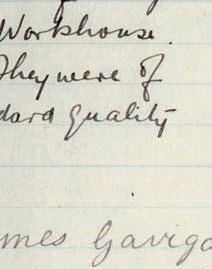 Workhouse.
They were of
dard quality
mes Gaviga